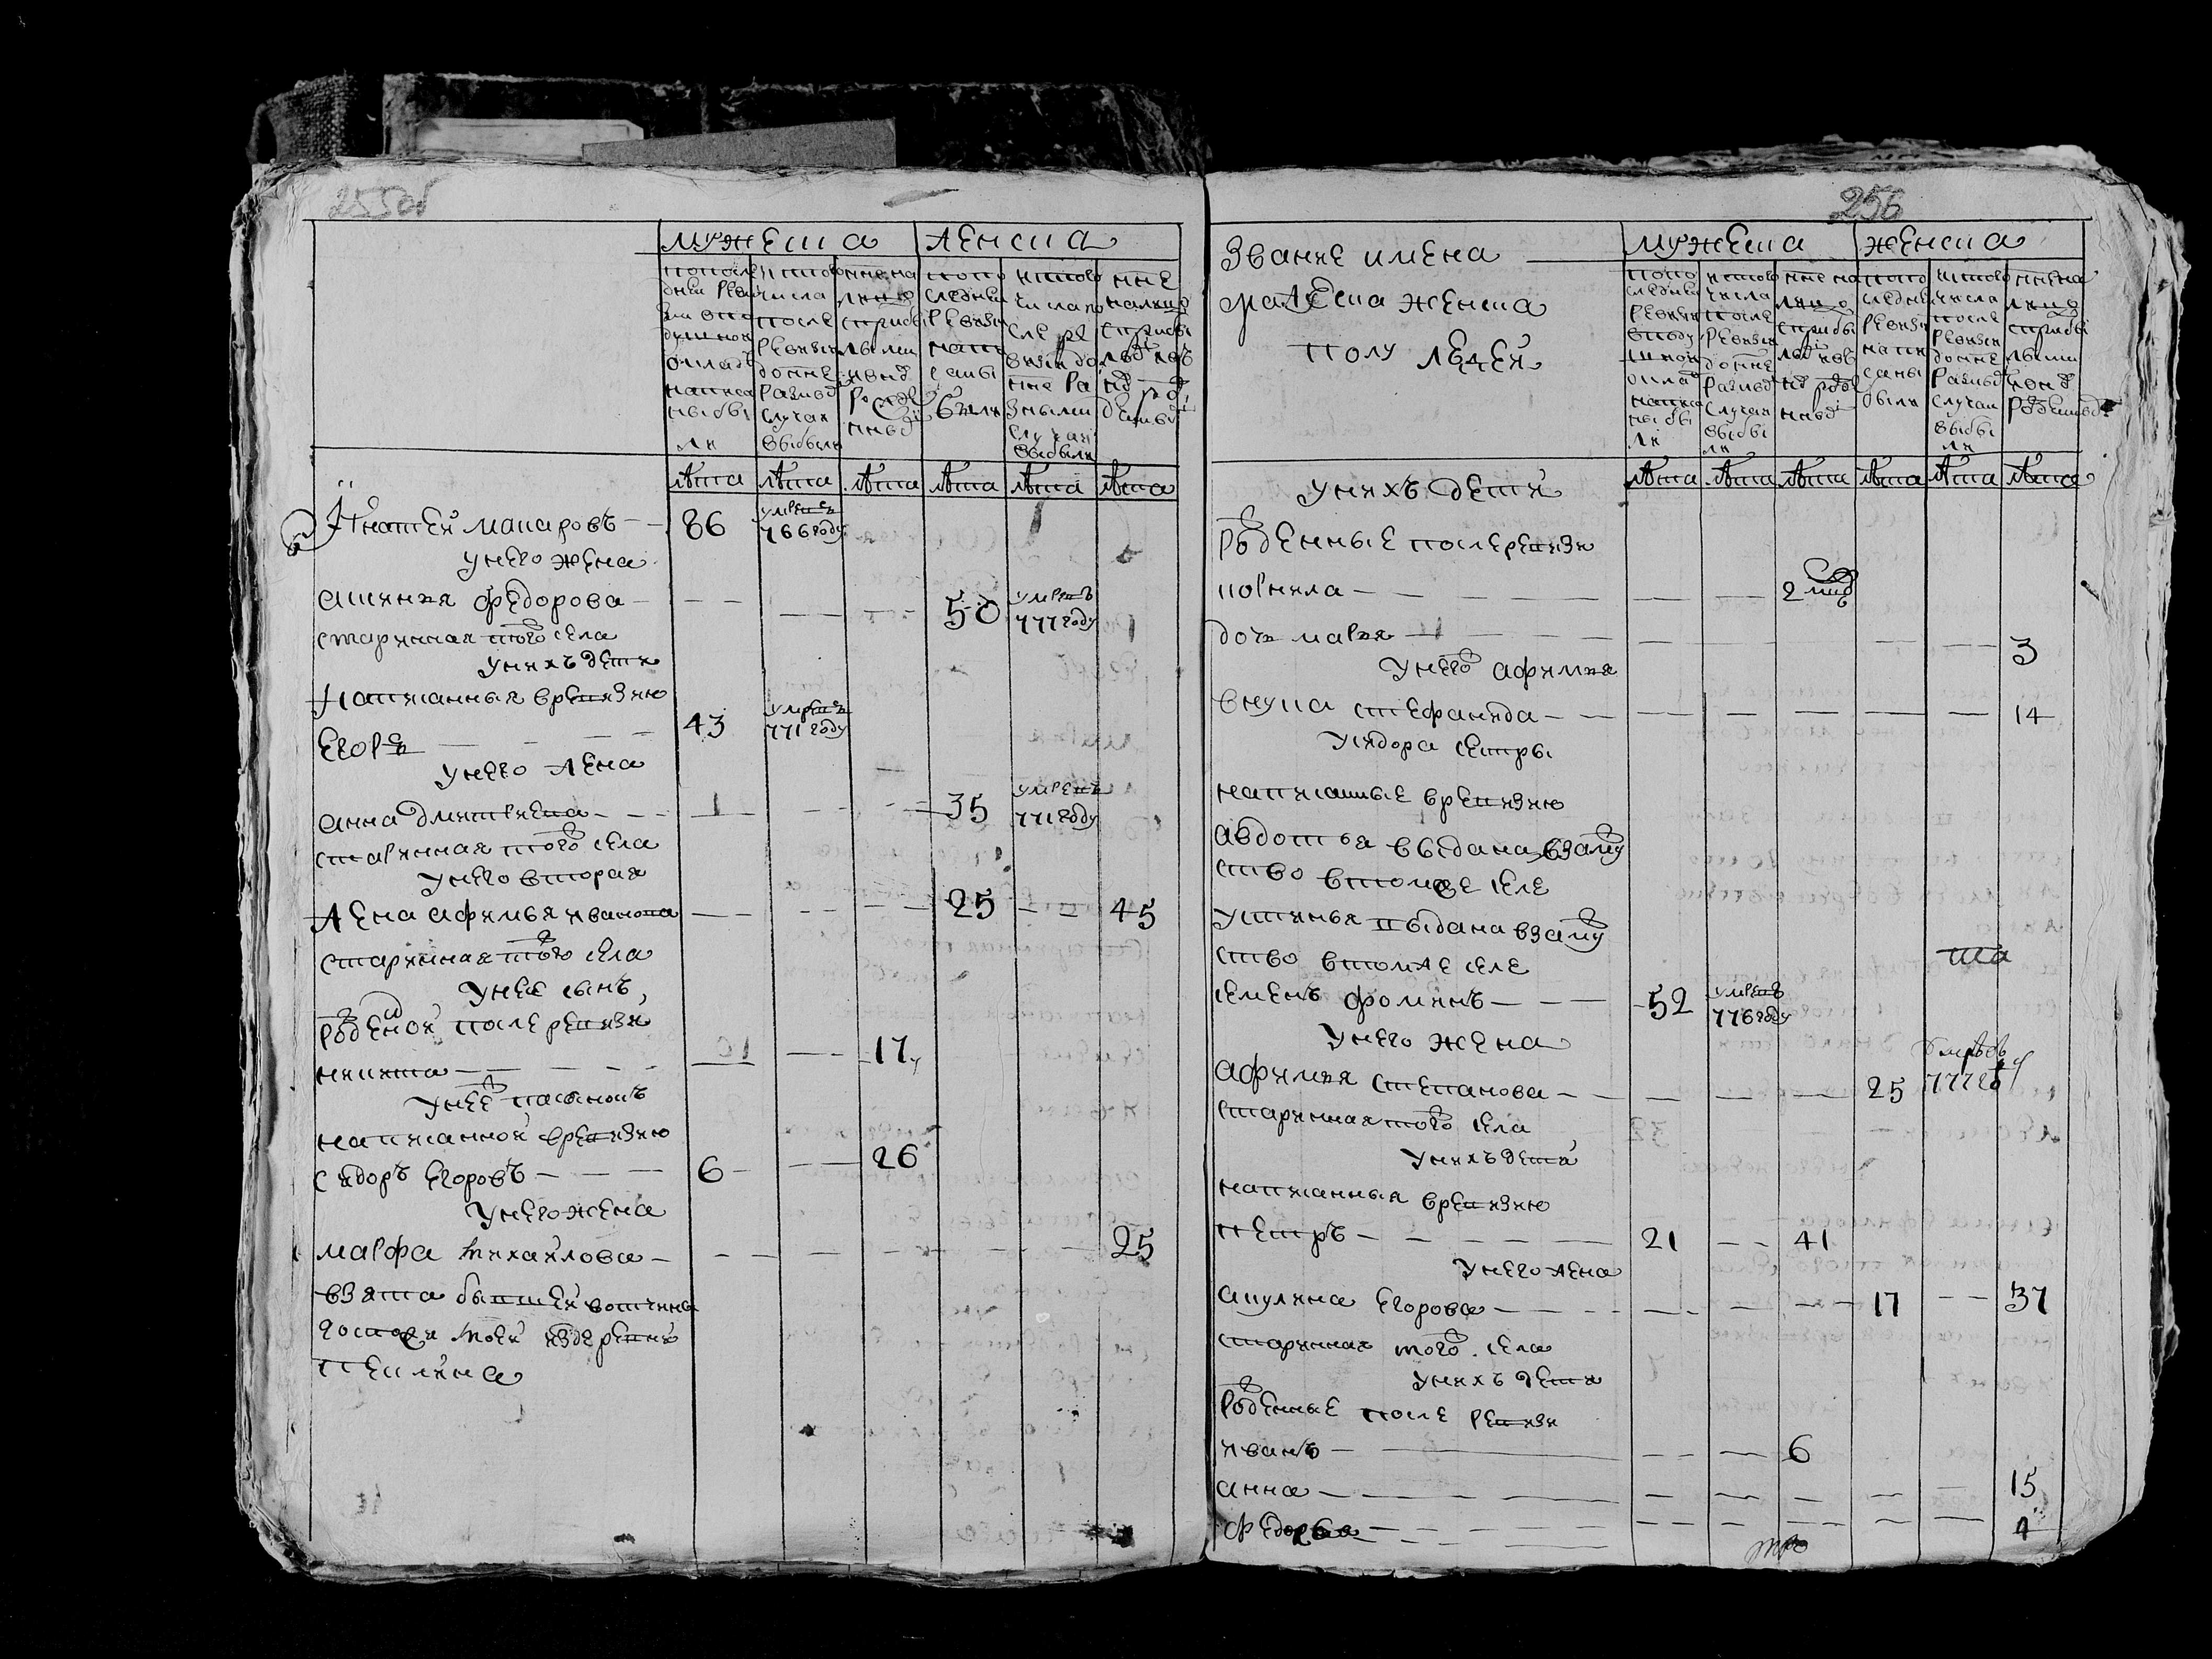 255об
мужеска женска
попоследней ревизии вподушной оклад написаны были
ис того числа после ревизии до ныне разными случаи выбыли
ныне на лицо с прибылыми и вновь рожденными
по последней ревизии написаны были
ис того числа после ревизии до ныне разными случаи выбыли
ныне на лицо с прибылыми и вновь рожденными
лѣта лѣта лѣта лѣта лѣта лѣта
Игнатей макаровъ 86 умре 766 году
у него жена
ксения федорова 50 умре 777 году
старинная того села
у нихъ дети
написанныя вревизию
Егоръ 43 умре 771 году
у него жена
анна дмитриева 35 умре 771 году
старинная того села
у него вторая
жена афимья иванова 25 45
старинная того села
у нее сынъ
рожденой после ревизи
никита 17
у нее пасынокъ
написанной вревизию
сидоръ Егоровъ 6 26
у него жена
марфа михайлова 25
взята бывшей вотчины
господ моей издеревни
256
звание имена мужеска женска
мужеска женска
полу людей
попоследней ревизии вподушной оклад написаны были
ис того числа после ревизии до ныне разными случаи выбыли
ныне на лицо с прибылыми и вновь рожденными
по последней ревизии написаны были
ис того числа после ревизии до ныне разными случаи выбыли
ныне на лицо с прибылыми и вновь рожденными
лѣта лѣта лѣта лѣта лѣта лѣта
у нихъ дети
рожденные после ревизи
корнила 2
дочь марья 3
у него афимия
внука стефанида 14
у сидора сестры
написанные вревизию
авдотья выдана взаму
ство втомже селе
устинья выдана взаму
ство втомже селе
семенъ фоминъ 52 умре 776 году
у него жена
афимия степанова 25 777 г
старинная того села
у нихъ дети
написанныя вревизию
петръ 21 41
у него жена
акулина Егорова 17 37
старинная того села
у нихъ дети
рожденные после ревизи
иванъ 6
анна 15